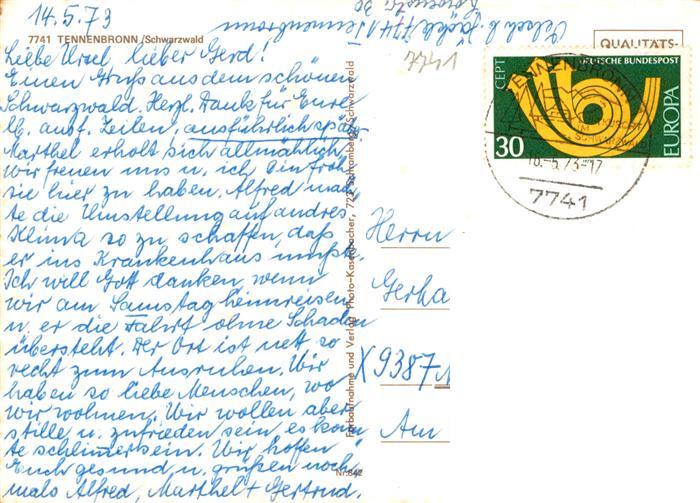 14.5.73
7741 TENNENBRONN /Schwarzwald
Liebe Ursel, lieber Gerd!
Einen Gruß aus dem schönen
Schwarzwald. Herzl. Dank für Eure
lb. ausf. Zeilen, ausführlich spä-
Marthel erholt sich allmählich
wir freuen uns u. ich bin froh
sie hier zu haben. Alfred mach-
te die Umstellung auf andres
Klima so zu schaffen, daß
er ins Krankenhaus mußte.
Ich will Gott danken, wenn
wir am Samstag heimreisen
u. er die Fahrt ohne Schaden
übersteht. Der Ort ist nett so
recht zum Ausruhen. Wir
haben so liebe Menschen, wo
wir wohnen. Wir wollen aber
stille u. zufrieden sein, es könn
te schlimmer sein. Wir hoffen
Euch gesund u. grüßen noch-
mals Alfred, Marthel + Gertrud.
7741 Tennenbronn
7741
Farbaufnahme und Verlag Photo-Kasenbacher, 723 Schramberg/Schwarzwald
Nr. 842
QUALITÄTS-
CEPT
DEUTSCHE BUNDESPOST
EUROPA
30
TENNENBRONN
IM
SCHWARZWALD
16.-5.73-17
7741
Herrn
Gerha
X 9387
Am